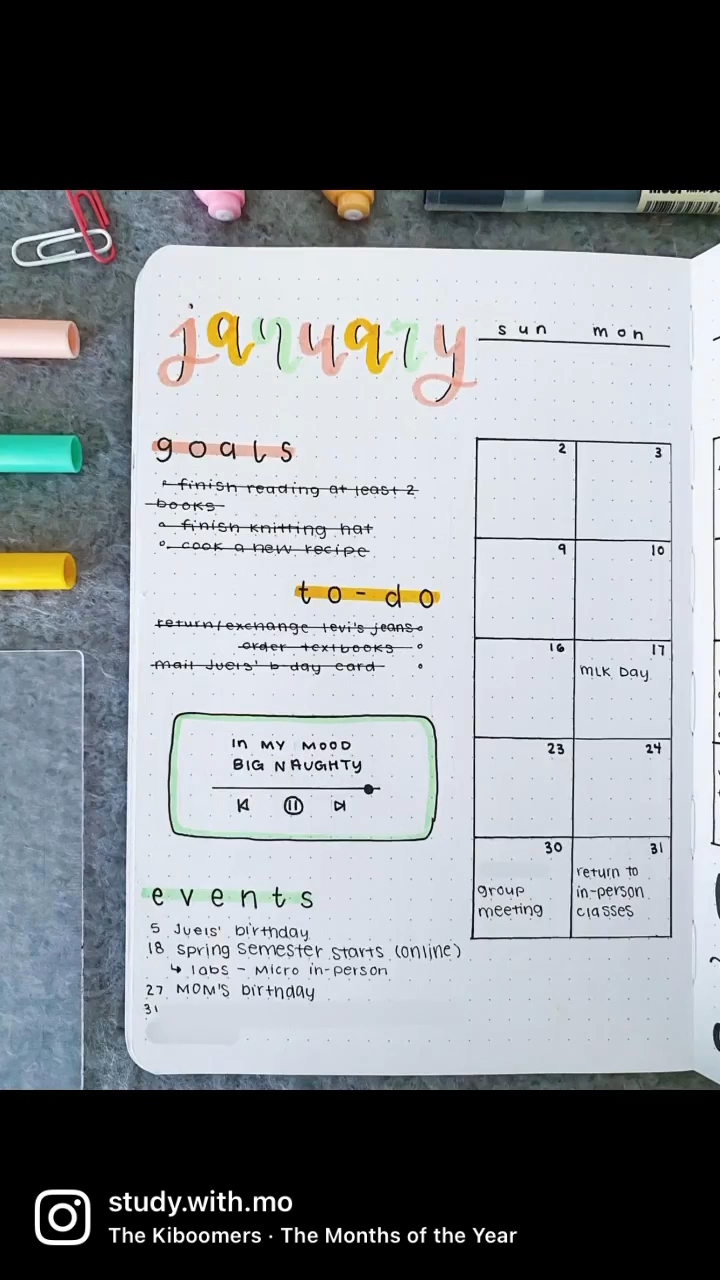 january
sun mon
goals
finish reading at least 2
books
finish knitting hat
cook a new recipe
to-do
return/exchange levi's jeans
order textbooks
mail Juels' b-day card
In MY MOOD
BIG NAUGHTY
events
5 Juels' birthday
18 spring semester starts (online)
↳ labs - Micro in-person
27 MOM'S birthday
31
2 3
9 10
16 17
MLK Day
23 24
30 31
group
meeting
return to
in-person
classes
study.with.mo
The Kiboomers · The Months of the Year